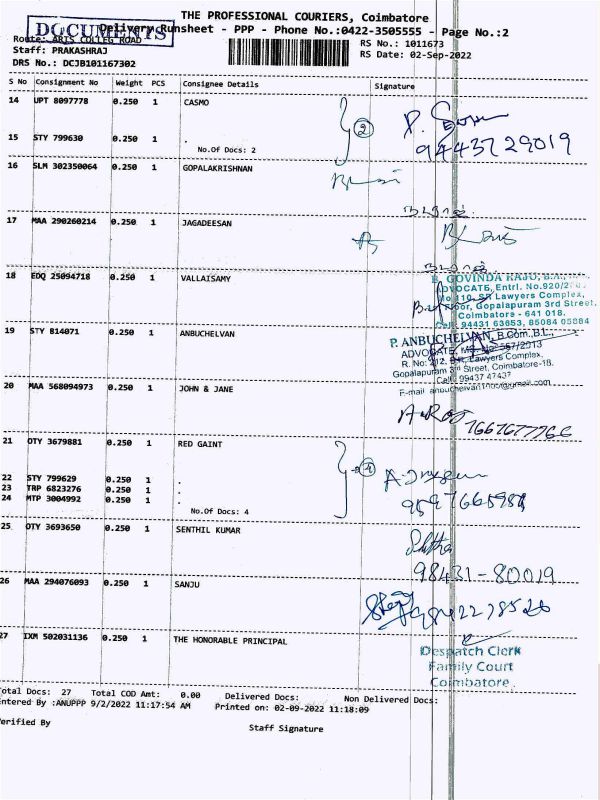 THE PROFESSIONAL COURIERS, Coimbatore
DOCUMENTS
Delivery Runsheet - PPP - Phone No.:0422-3505555 - Page No.:2
Route: ARTS COLLEG ROAD
RS No.: 1011673
Staff: PRAKASHRAJ
RS Date: 02-Sep-2022
DRS No.: DCJB101167302
S No Consignment No Weight PCS Consignee Details Signature
14 UPT 8097778 0.250 1 CASMO
2
9443729019
15 STY 799630 0.250 1 .
No.Of Docs: 2
16 SLM 302350064 0.250 1 GOPALAKRISHNAN
17 MAA 290260214 0.250 1 JAGADEESAN
18 EDQ 25094718 0.250 1 VALLAISAMY
B. GOVINDA RAJU, B.A.,
ADVOCATE, Entrl. No.920/2
No 110, SR Lawyers Complex,
Floor, Gopalapuram 3rd Street,
Coimbatore - 641 018.
Cell: 94431 63653, 85084 05884
19 STY 814071 0.250 1 ANBUCHELVAN
P. ANBUCHELVAN, B.Com.,B.L.,
ADVOCATE, MS. No: 567/2013
R. No: 212, S.R. Lawyers Complex,
Gopalapuram 3rd Street, Coimbatore-18.
Cell: 99437 47437
E-mail:
20 MAA 568094973 0.250 1 JOHN & JANE
7667677766
21 OTY 3679881 0.250 1 RED GAINT
22 STY 799629 0.250 1 .
23 TRP 6823276 0.250 1 .
24 MTP 3004992 0.250 1 .
No.Of Docs: 4
25 OTY 3693650 0.250 1 SENTHIL KUMAR
98431-80019
26 MAA 294076093 0.250 1 SANJU
27 IXM 502031136 0.250 1 THE HONORABLE PRINCIPAL
Despatch Clerk
Family Court
Coimbatore
Total Docs: 27 Total COD Amt: 0.00 Delivered Docs: Non Delivered Docs:
Entered By :ANUPPP 9/2/2022 11:17:54 AM Printed on: 02-09-2022 11:18:09
Verified By
Staff Signature